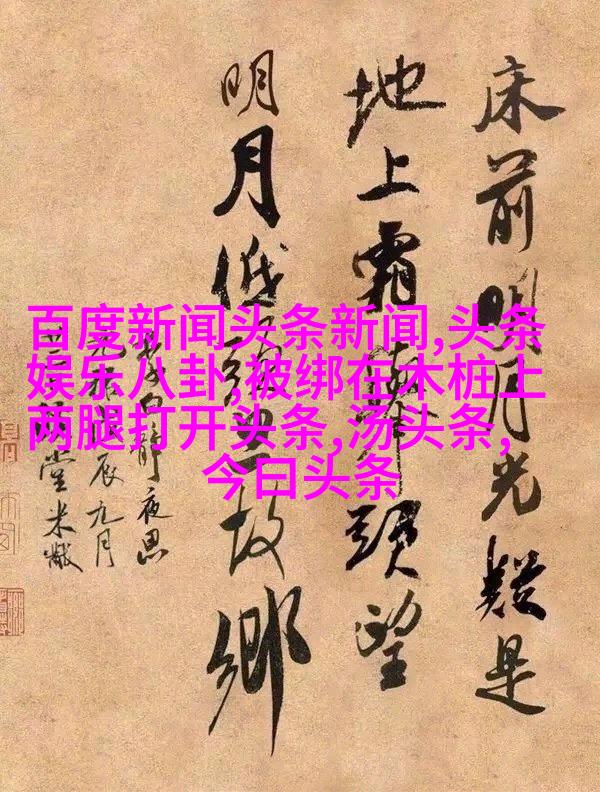 床前明月光疑是
地上霜舉頭望
明月低頭思故鄉
李白靜夜思
辰九月
堂米黻
百度新闻头条新闻,头条
娱乐八卦,被绑在木桩上
两腿打开头条,汤头条,
今日头条